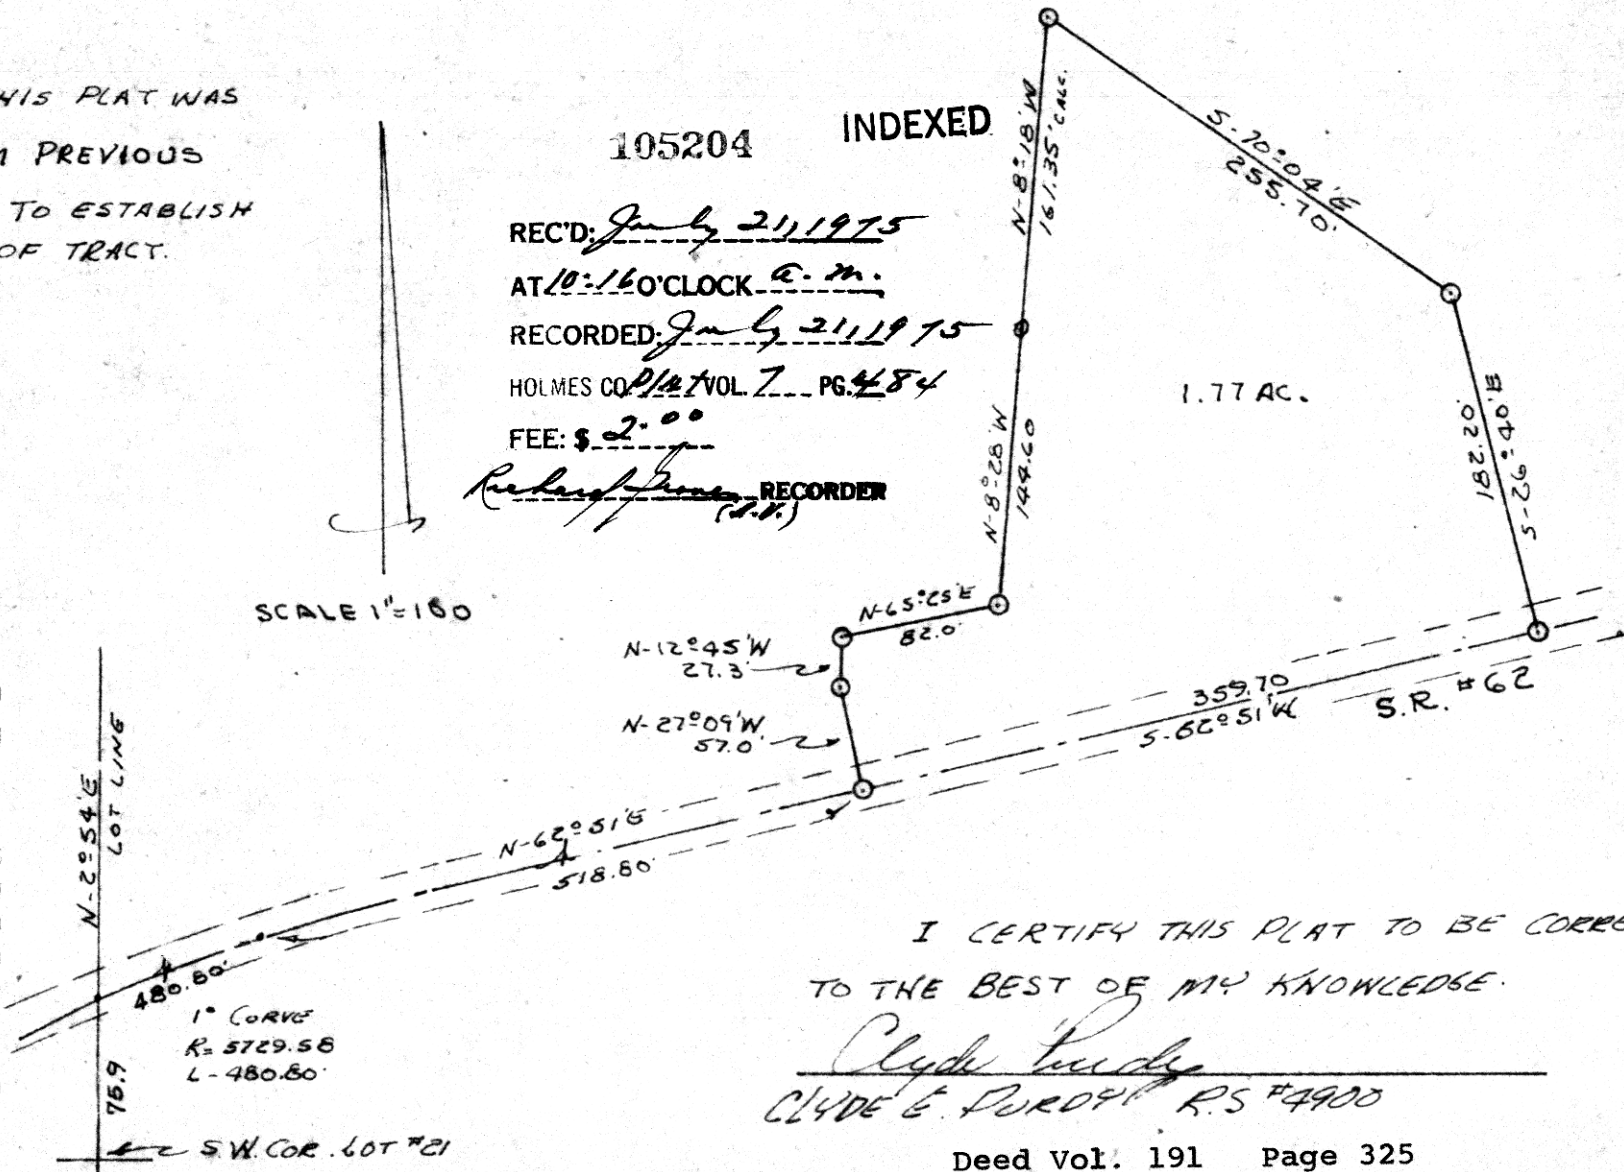 HIS PLAT WAS
PREVIOUS
TO ESTABLISH
OF TRACT.
105204
INDEXED
REC'D: July 21, 1975
AT 10:16 O'CLOCK a. m.
RECORDED: July 21, 1975
HOLMES CO. Plat VOL. 7 PG. 484
FEE: $ 2.00
RECORDER
SCALE 1"=100
N-8°18'W
161.35' CALC.
S-70°04'E
255.70'
1.77 AC.
182.20'
S-26°40'E
N-8°28'W
144.60
N-65°25'E
82.0'
N-12°45'W
27.3'
N-27°09'W
57.0'
359.70
S-62°51'W
S.R. #62
N-62°51'E
518.80'
N-2°54'E
LOT LINE
480.80'
1° CURVE
R= 5729.58
L-480.80'
75.9
S.W. COR. LOT #21
I CERTIFY THIS PLAT TO BE CORRE
TO THE BEST OF MY KNOWLEDGE.
Clyde Purdy
CLYDE E. PURDY R.S #4900
Deed Vol. 191 Page 325